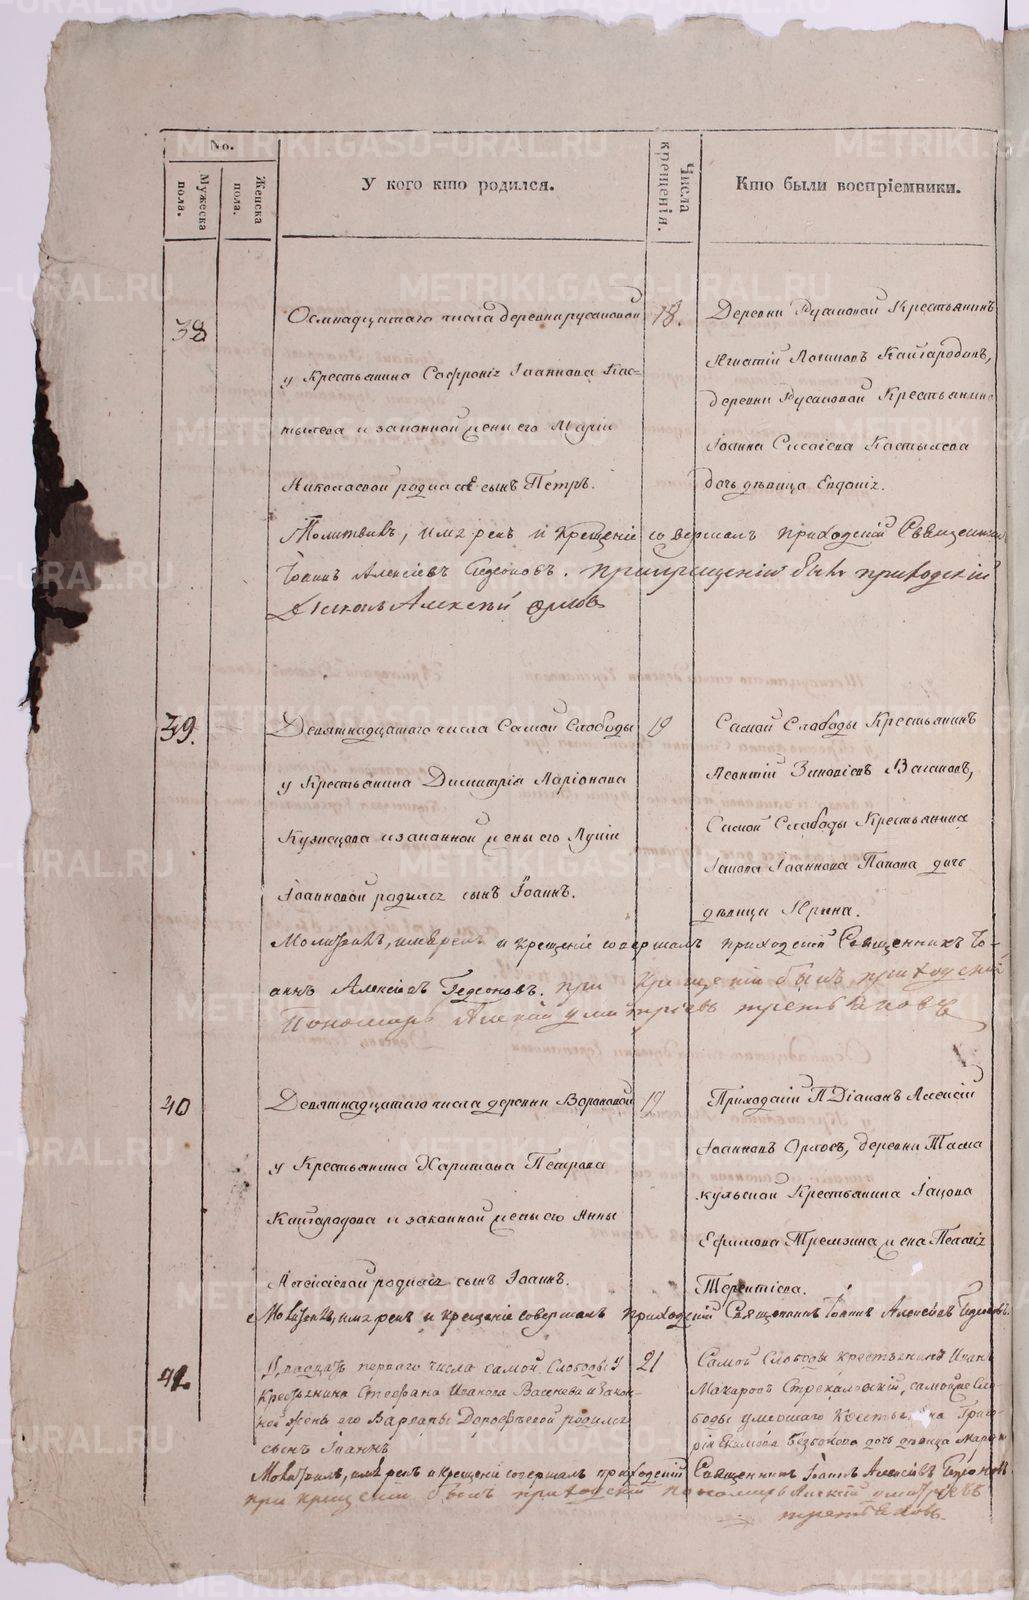 No.
Мужеска пола.
Женска пола.
У кого кто родился.
Числа крещенія.
Кто были воспріемники.
38
Осмнадцатаго числа деревни Русаковой
у Крестьянина Іаннова Кас-
тылева и законной жены его Маріи
Николаевой родился сынъ Петръ.
18.
Деревни Русаковой Крестьянинъ
Игнатій Логиновъ Кайгородовъ,
деревни Русаковой Крестьянина
Іоанна Кастылева
дочь дѣвица Евдокія.
Молитвилъ, имя рекъ и крещеніе совершалъ приходскій Священникъ
Іоаннъ Алексіевъ Гедеоновъ. При крещеніи былъ приходскій
Діаконъ Алексѣй Орловъ
39.
Девятнадцатаго числа Самой Слободы
у Крестьянина Димитрія Ларіонова
Кузнецова и законной жены его
Іоанновой родился сынъ Іоаннъ.
19
Самой Слободы Крестьянинъ
Леонтій Зиновіевъ Вагановъ,
Самой Слободы Крестьянина
Іакова Іоаннова Попова дочь
дѣвица Ирина.
Молитвилъ, имя рекъ и крещеніе совершалъ приходскій Священникъ Іо-
аннъ Алексіевъ Гедеоновъ. при крещеніи былъ приходскій
Пономарь Третьяковъ
40
Девятнадцатаго числа деревни Вороновой
у Крестьянина Харитона Петрова
Кайгородова и законной жены его Анны
Алексіевой родился сынъ Іоаннъ.
19
Приходскій Діаконъ Алексій
Іоанновъ Орловъ, деревни Тама
кульской Крестьянина Іакова
Ефимова жена Пелагія
Терентіева.
Молитвилъ, имя рекъ и крещеніе совершалъ приходскій Священникъ Іоаннъ Алексіевъ Гедеоновъ.
Двадцать перваго числа самой Слободы у
Крестьянина Стефана Иванова и закон-
ной жены его Варвары Дорофѣевой родился
сынъ Іоаннъ
21
Самой Слободы крестьянинъ Иванъ
Макаровъ Стрекаловскій, самой же Сло-
боды умершаго Крестьянина Григо-
рія дочь дѣвица
Молитвилъ, имя рекъ и крещеніе совершалъ приходскій Священникъ Іоаннъ Алексіевъ Гедеоновъ
при крещеніи былъ приходскій пономарь
Третьяковъ.
METRIKI.GASO-URAL.RU